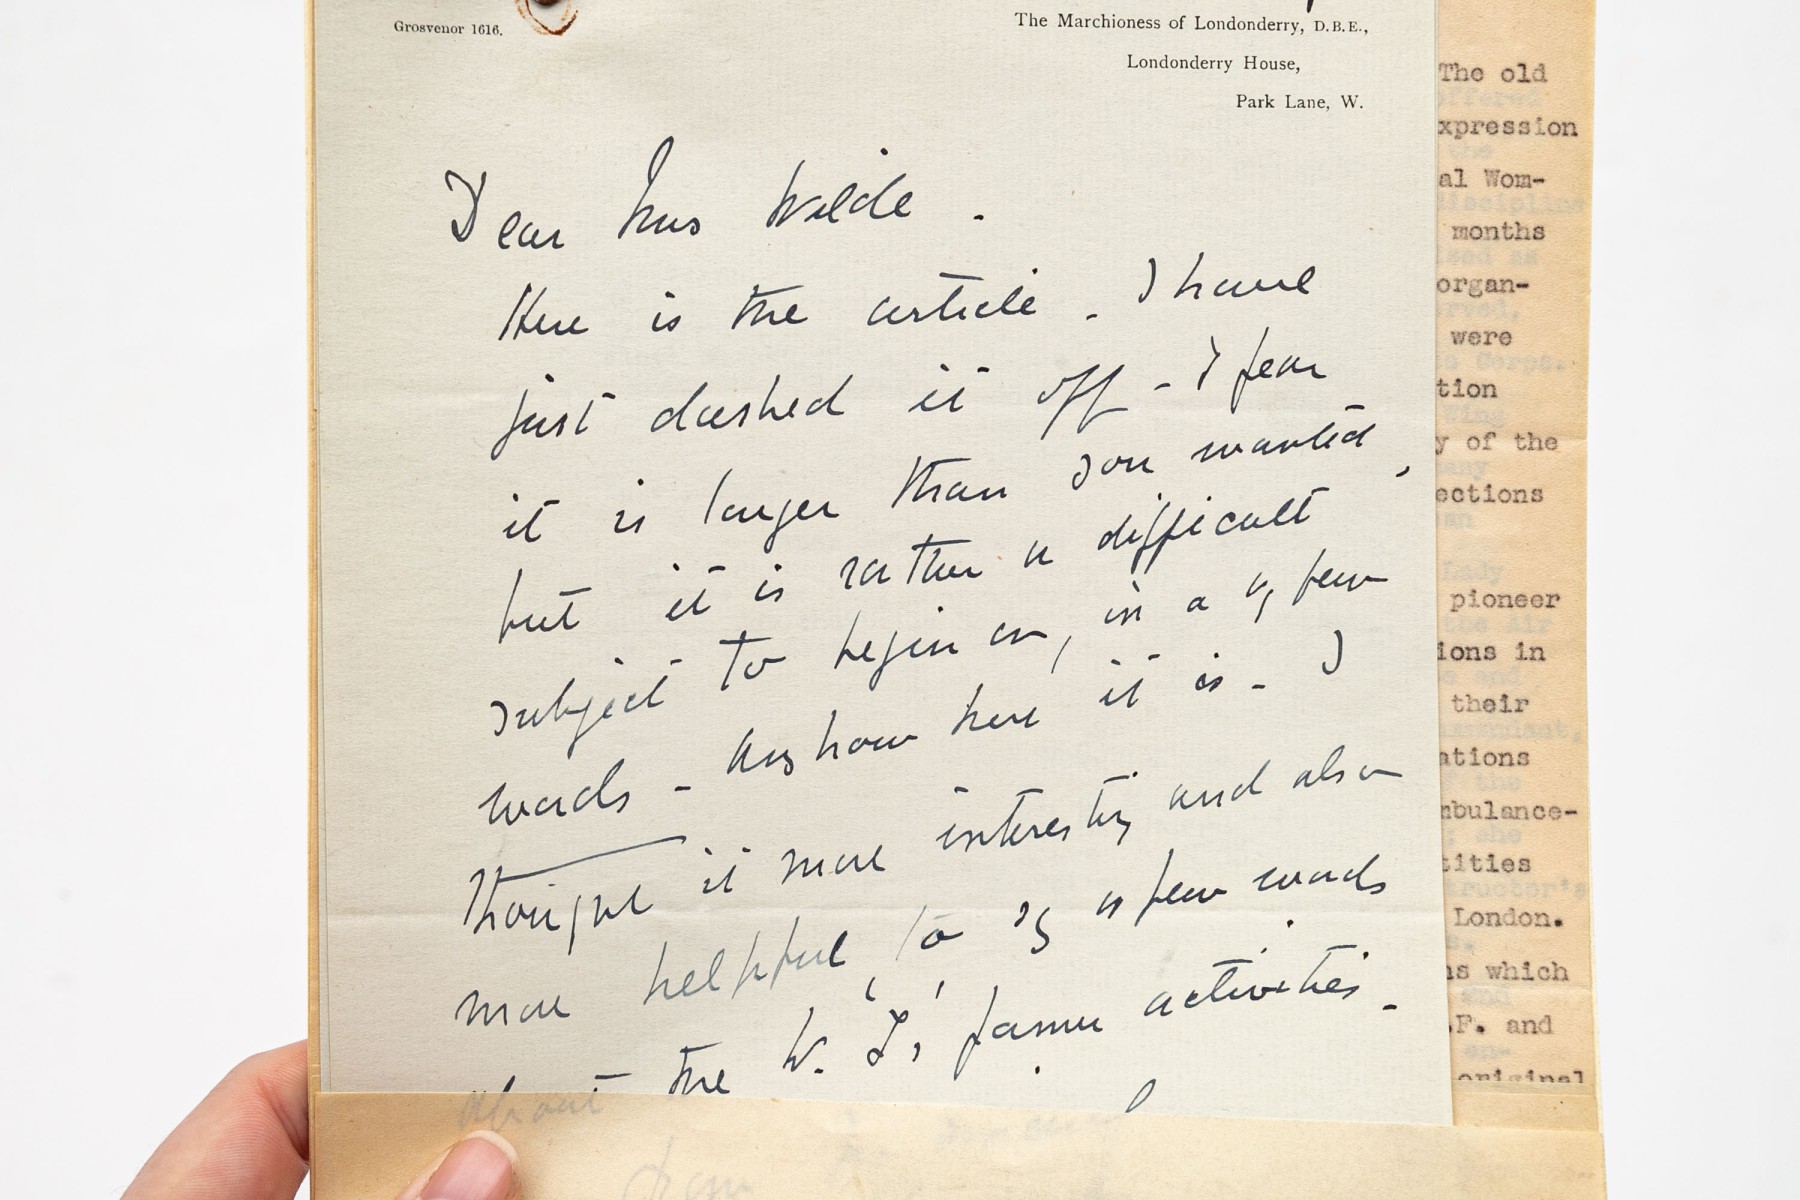 Grosvenor 1616.
The Marchioness of Londonderry, D.B.E.,
Londonderry House,
Park Lane, W.
Dear Miss Wilde.
Here is the article. I have
just dashed it off - I fear
it is longer than you wanted,
but it is rather a difficult
subject to begin on, in a few
words - Anyhow here it is - I
thought it more interesting and also
more helpful to say a few words
about the W. L.'s former activities.
The old
xpression
al Wom-
months
organ-
were
tion
y of the
ections
pioneer
ions in
their
ations
mbulance-
tities
London.
ns which
.F. and
original